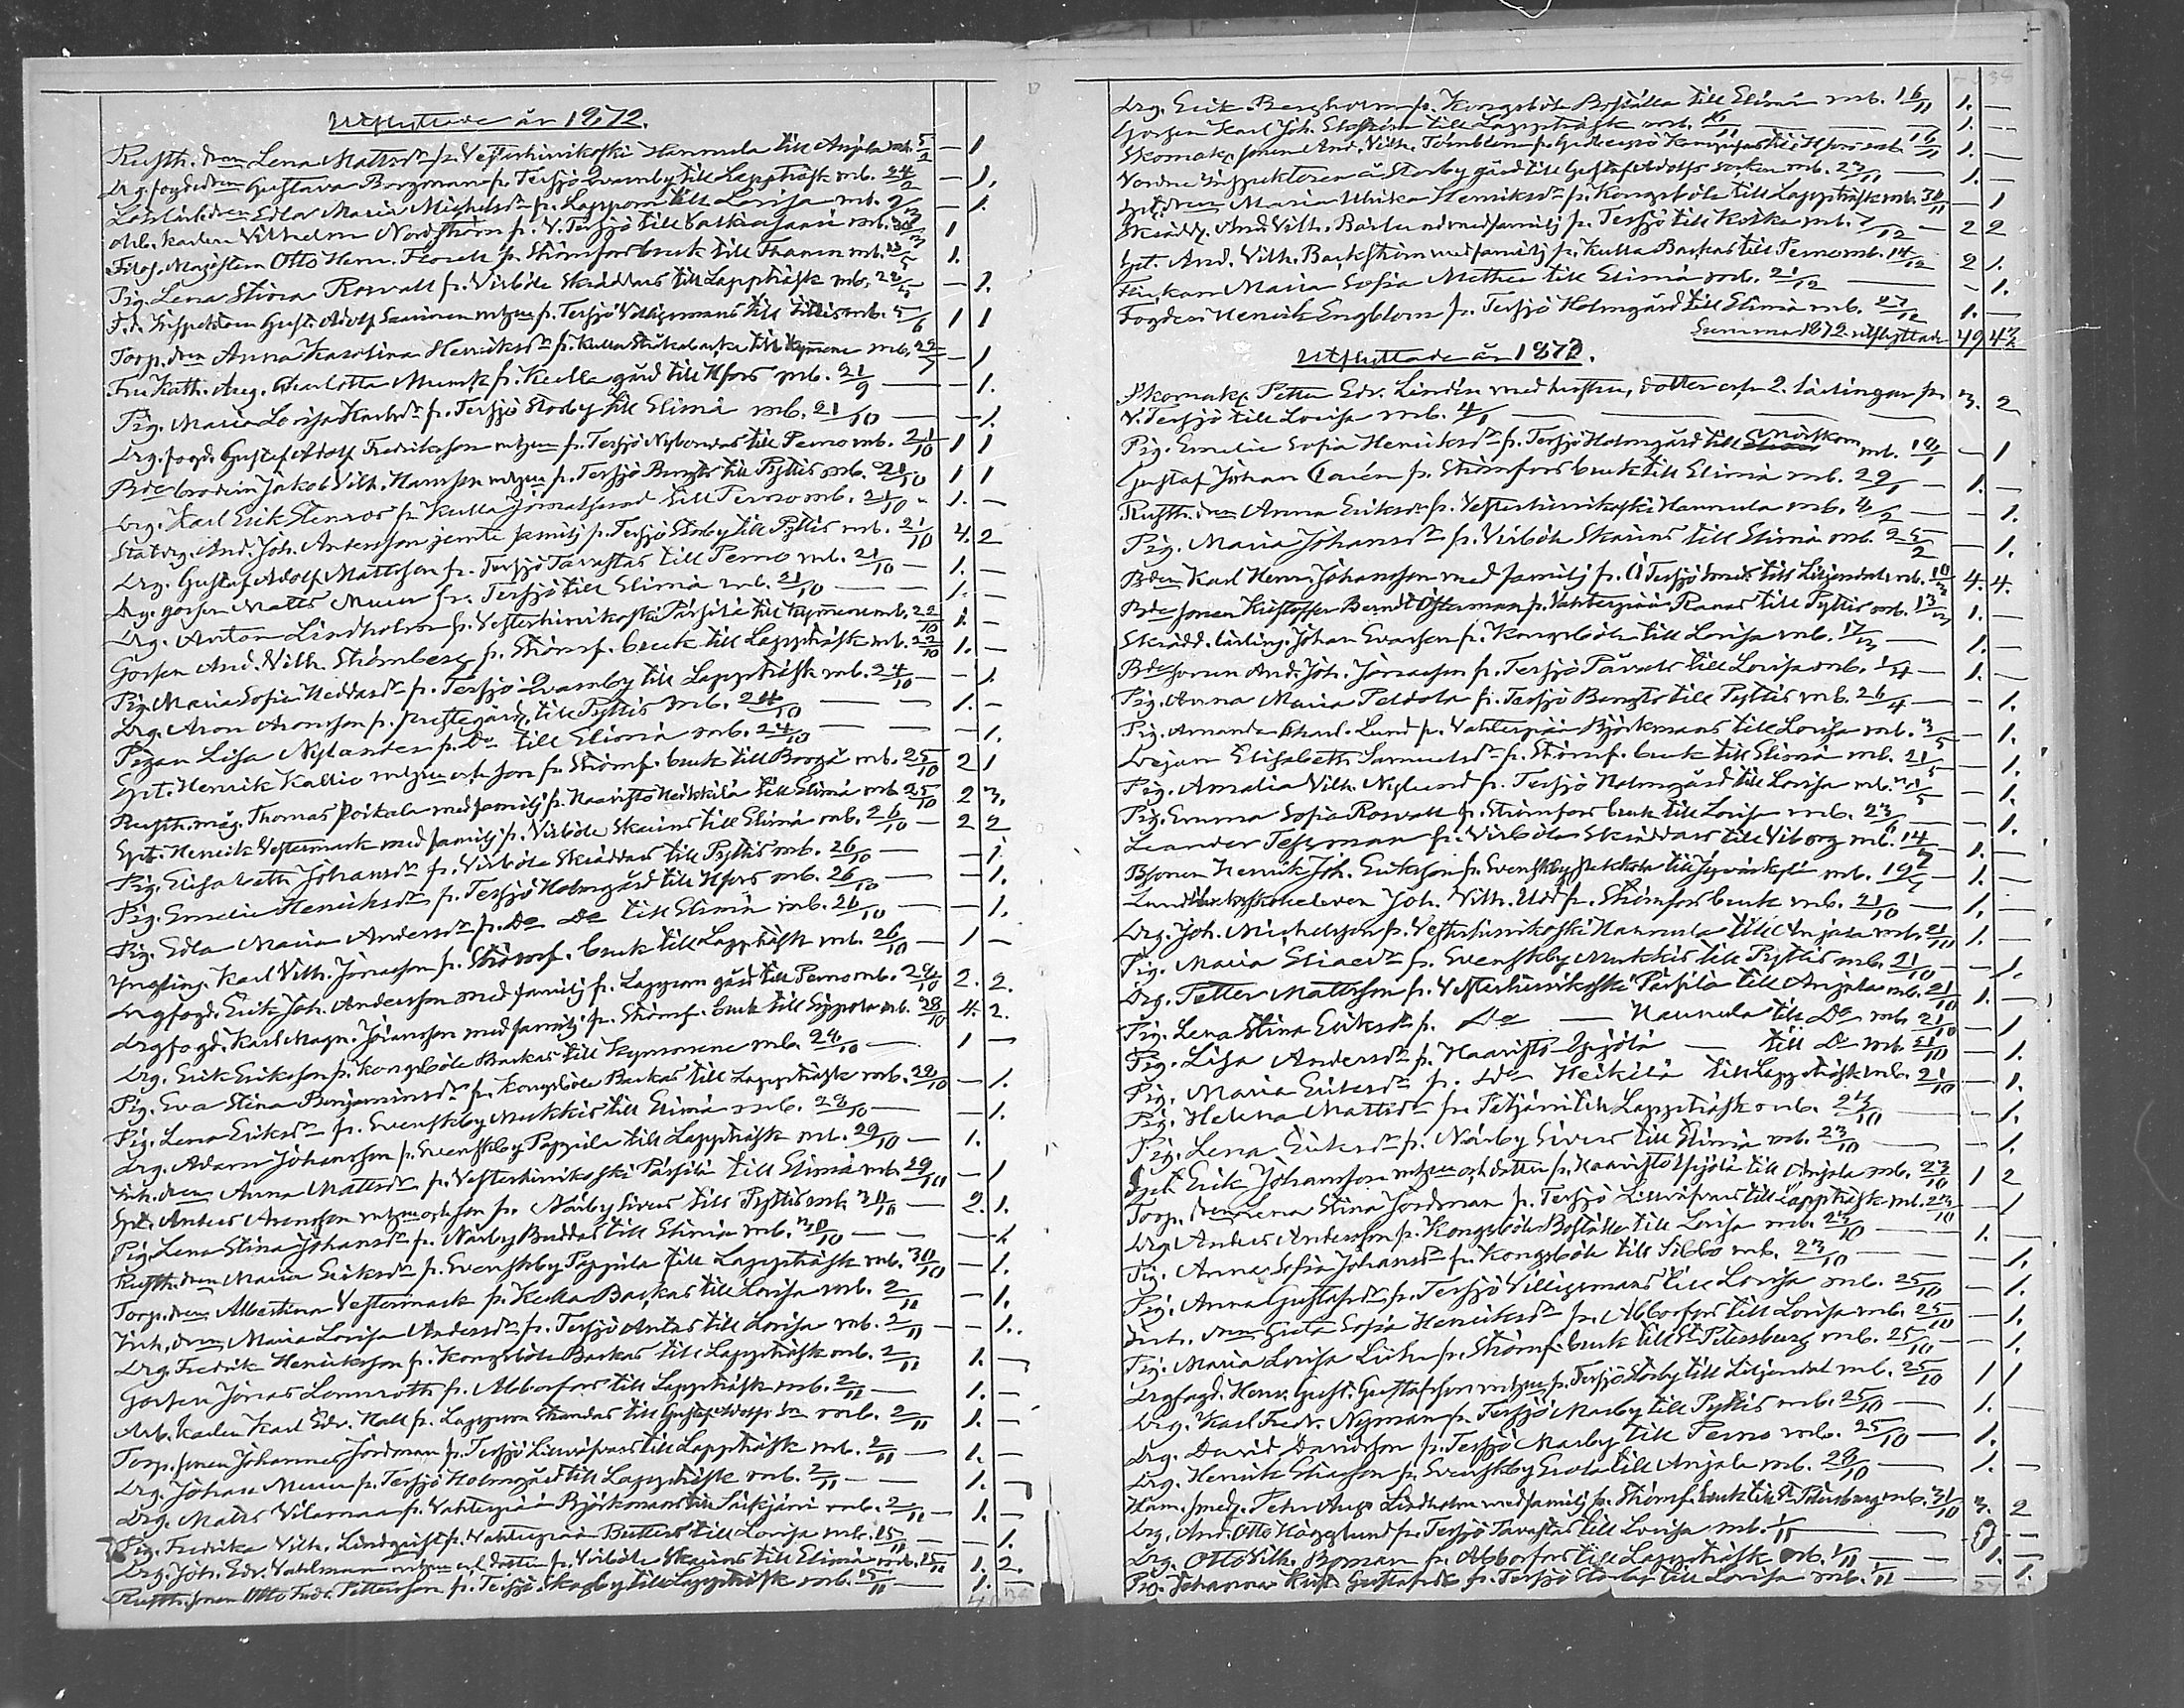 Utflyttade år 1872.
Rusth. dren Lena Mattsdr fr. Vesterhinikoski Hannula till Anjala mb. 5/2 — 1
Drg. fogdedren Gustava Borgman fr. Tersjö Qvarnby till Lappträsk mb. 24/2 — 1.
Edla Maria Michelsdr fr. Lappom till Lovisa mb. — 1.
Arb. karlen Vilhelm Nordström fr. V. Tersjö till Valkeasaari mb. 1
Filos. Magistern Otto Herm. Florell fr. Strömfors bruk till mb. 1.
Pig. Lena Stina Rosvall fr. Virböle Skräddars till Lappträsk mb. — 1.
F.d. Inspektoren Gust. Adolf Saarinen m hu fr. Tersjö Villigmans till mb. 5/6 1 1
Torp. dren Anna Karolina Henriksdr fr. Kulla till Kymmene mb. 29/7 — 1
Fru Kath. Aug. Charlotta Munck fr. Kulla gård till Hfors mb. 21/9 — 1.
Pig. Maria Lovisa Karlsdr fr. Tersjö Storby till Elimä mb. 21/10 — 1.
Drg. fogd. Gustaf Adolf Fredriksson m hu fr. Tersjö Nybondas till Perno mb. 21/10 1 1
Bde brodern Jakob Vilh. Hansson m hu fr. Tersjö Bengts till Pyttis mb. 21/10 1 1
Drg. Karl Erik Stenros fr. Kulla till Perno mb. 21/10 1. —
Statdrg. And. Joh. Andersson jemte familj fr. Tersjö Storby till Pyttis mb. 21/10 4. 2
Drg. Gustaf Adolf Mattsson fr. Tersjö Tavastas till Perno mb. 21/10 — 1. —
Drg. gossen Matts Muur fr. Tersjö till Elimä mb. 21/10 — 1. —
Drg. Anton Lindholm fr. Vesterhinikoski Pärsilä till Kymmene mb. 22/10 1. —
Gossen And. Vilh. Strömberg fr. Strömf. bruk till Lappträsk mb. 22/10 1. —
Pig. Maria Sofia Heddasdr fr. Tersjö Qvarnby till Lappträsk mb. 24/10 — 1.
Drg. Aron Aronsson fr. prestegård. till Pyttis mb. 24/10 — 1. —
Pigan Lisa Nylander fr. Do till Elimä mb. 24/10 — 1.
Spt. Henrik Kallio m hu och son fr. Strömf. bruk till Borgå mb. 25/10 2 1
Rusth. måg. Thomas Poikala med familj fr. Haavisto Heikkilä till Elimä mb. 25/10 2 3.
Spt. Henrik Vestermark med familj fr. Virböle Skarins till Elimä mb. 26/10 — 2 2
Pig. Elisabeth Johansdr fr. Virböle Skräddars till Pyttis mb. 26/10 — 1.
Pig. Emelie Henriksdr fr. Tersjö Holmgård till Hfors mb. 26/10 — 1.
Pig. Edla Maria Andersdr fr. Do Do till Elimä mb. 26/10 — 1.
Yngling. Karl Vilh. Jonasson fr. Strömf. bruk till Lappträsk mb. 26/10 — 1 —
Drgfogd. Erik Joh. Andersson med familj fr. Lappom gård till Perno mb. 28/10 2. 2.
Drgfogd. Karl Magn. Johansson med familj fr. Strömf. bruk till Sippola mb. 28/10 4. 2.
Drg. Erik Eriksson fr. Kongsböle Backas till Kymmene mb. 28/10 — 1 —
Pig. Eva Stina Benjaminsdr fr. Kongsböle Backas till Lappträsk mb. 28/10 — 1.
Pig. Lena Eriksdr fr. Svenskby Mukkis till Elimä mb. 28/10 — 1.
Drg. Adam Johansson fr. Svenskby Pappila till Lappträsk mb. 29/10 — 1.
Inh. dren Anna Mattsdr fr. Vesterhinikoski Pärsilä till Elimä mb. 29/10 — 1
Spt. Anders Aronsson m hu och son fr. Närby Sivers till Pyttis mb. 30/10 — 2. 1.
Pig. Lena Stina Johansdr fr. Närby Buddas till Elimä mb. 30/10 — 1.
Rusth. dren Maria Eriksdr fr. Svenskby Pappila till Lappträsk mb. 30/10 — 1.
Torp. dren Albertina Vestermark fr. Kulla Backas till Lovisa mb. 2/11 — 1.
Inh. dren Maria Lovisa Andersdr fr. Tersjö Antas till Lovisa mb. 2/11 — 1.
Drg. Fredrik Henriksson fr. Kongsböle Backas till Lappträsk mb. 2/11 1. —
Gossen Jonas Lönnroth fr. Abborfors till Lappträsk mb. 2/11 — 1. —
Arb. karlen Karl Edv. Hall fr. Lappom Strandas till Gustaf Adolfs sn mb. 2/11 1. —
Torp. sonen Johannes Jordman fr. Tersjö till Lappträsk mb. 2/11 — 1. —
Drg. Johan Muur fr. Tersjö Holmgård till Lappträsk mb. 2/11 — 1. —
Drg. Matts Vilamaa fr. Vahterpää Björkmans till Säkjärvi mb. 2/11 — 1. —
Pig. Fredrika Vilh. Lindqvist fr. Vahterpää Butters till Lovisa mb. 15/11 — 1.
Drg. Joh. Edv. Vahlman m hu och dotter fr. Virböle Skarins till Elimä mb. 15/11 1. 2.
Rusth. sonen Otto Fredr. Pettersson fr. Tersjö Skogby till Lappträsk mb. 15/11 1. —
Drg. Erik Bergholm fr. Kongsböle Boställe till Elimä mb. 16/11 1. —
Gossen Karl Joh. Ekström till Lappträsk mb. 16/11 1. —
Skomak. sonen And. Vilh. Törnblom fr. till Hfors mb. 16/11 1. —
Vordne Inspektoren å Storby gård till Gustaf Adolfs socken mb. 23/11 — 1. —
Spt. dren Maria Ulrika Henriksdr fr. Kongsböle till Lappträsk mb. 30/11 — 1
Skrädd. And. Vilh. Bärlund med familj fr. Tersjö till Kotka mb. 7/12 — 2 2
Spt. And. Vilh. Backström med familj fr. Kulla Backas till Perno mb. 14/12 2 1.
Flickan Maria Sofia Mathea till Elimä mb. 21/12 — 1.
Fogden Henrik Engblom fr. Tersjö Holmgård till Elimä mb. 27/12 1. —
Summa 1872 utflyttade 49 42
Utflyttade år 1873.
Skomak. Petter Edv. Lindén med hustru, dotter och 2. lärlingar fr. 3. 2
V. Tersjö till Lovisa mb. 4/1
Pig. Emelie Sofia Henriksdr fr. Tersjö Holmgård till Mörskom mb. 18/1 — 1
Gustaf Johan Carén fr. Strömfors bruk till Elimä mb. 29/1 — 1. —
Rusth. dren Anna Eriksdr fr. Vesterhinikoski Hannula mb. 4/2 — 1.
Pig. Maria Johansdr fr. Virböle Skarins till Elimä mb. 25/2 — 1.
Bden Karl Henr. Johansson med familj fr. Ö Tersjö till Liljendal mb. 4. 4.
Bde sonen Kristoffer Berndt Österman fr. Vahterpää Ranas till Pyttis mb. 13/3 1. —
Skrädd. lärling. Johan Evasson fr. Kongsböle till Lovisa mb. 17/3 — 1. —
Bdesonen And. Joh. Jonasson fr. Tersjö Påvals till Lovisa mb. 1/4 — 1. —
Pig. Anna Maria Peldola fr. Tersjö Bengts till Pyttis mb. 26/4 — 1.
Pig. Amanda Charl. Lund fr. Vahterpää Björkmans till Lovisa mb. 3/5 — 1.
Dejan Elisabeth Samuelsdr fr. Strömf. bruk till Elimä mb. 21/5 — 1.
Pig. Amalia Vilh. Nylund fr. Tersjö Holmgård till Lovisa mb. 31/5 — 1.
Pig. Emma Sofia Rosvall fr. Strömfors bruk till Lovisa mb. — 1.
Leander Tessman fr. Virböle Skräddars till Viborg mb. 14/7 1. —
Bsonen Henrik Joh. Eriksson fr. Svenskby till Jyväskylä mb. 1. —
Landtbruksskoleleven Joh. Vilh. Udd fr. Strömfors bruk mb. 21/10 — 1. —
Drg. Joh. Michelsson fr. Vesterhinikoski Hannula till Anjala mb. 21/10 1. —
Pig. Maria Eliaedr fr. Svenskby Mukkis till Pyttis mb. 21/10 — 1.
Drg. Petter Mattsson fr. Vesterhinikoski Pärsilä till Anjala mb. 21/10 1. —
Pig. Lena Stina Eriksdr fr. Do — Hannula till Do mb. 21/10 — 1
Pig. Lisa Andersdr fr. Haavisto Yrjölä — till Do mb. 21/10 — 1.
Pig. Maria Eriksdr fr. Do Heikilä till Lappträsk mb. 21/10 — 1.
Pig. Helena Mattsdr fr. Petjärvi till Lappträsk mb. 23/10 — 1.
Pig. Lena Eriksdr fr. Närby Sivers till Elimä mb. 23/10 — 1.
Spt. Erik Johansson m hu och dotter fr. Haavisto Yrjölä till Anjala mb. 23/10 1 2
Torp. dren Lena Stina Jordman fr. Tersjö till Lappträsk mb. 23/10 — 1
Drg. Anders Andersson fr. Kongsböle Boställe till Lovisa mb. 23/10 1. —
Pig. Anna Sofia Johansdr fr. Kongsböle till Sibbo mb. 23/10 — 1.
Pig. Anna Gustafsdr fr. Tersjö Villigmans till Lovisa mb. 25/10 — 1.
Inh. dren Greta Sofia Henriksdr fr. Abborfors till Lovisa mb. 25/10 — 1.
Pig. Maria Lovisa fr. Strömf. bruk till St Petersburg mb. 25/10 — 1.
Drgfogd. Henr. Gust. Gustafsson m hu fr. Tersjö Storby till Liljendal mb. 25/10 1 1
Drg. Karl Fredr. Nyman fr. Tersjö Marby till Pyttis mb. 25/10 — 1. —
Drg. David Davidsson fr. Tersjö Marby till Perno mb. 25/10 — 1.
Drg. Henrik Eliasson fr. Svenskby Erola till Anjala mb. 28/10 — 1. —
Ham. smed. Petr. Aug. Lindholm med familj fr. Strömf. bruk till St Petersburg mb. 31/10 3. 2
Drg. And. Otto Högglund fr. Tersjö Tavastas till Lovisa mb. 1/11 — 1 —
Drg. Otto Vilh. Boman fr. Abborfors till Lappträsk mb. 1/11 — 1. —
Pig. Johanna Krist. Gustafsdr fr. Tersjö Storby till Lovisa mb. 1/11 — 1.